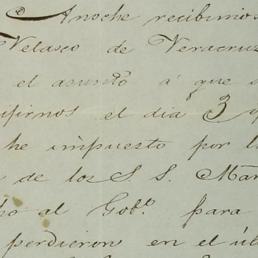 Anoche recibimos
Velasco de Veracruz
el asunto á que
el dia 3
he impuesto por l
de los S. S. Mar
al Gob.º para
perdieron en el úl